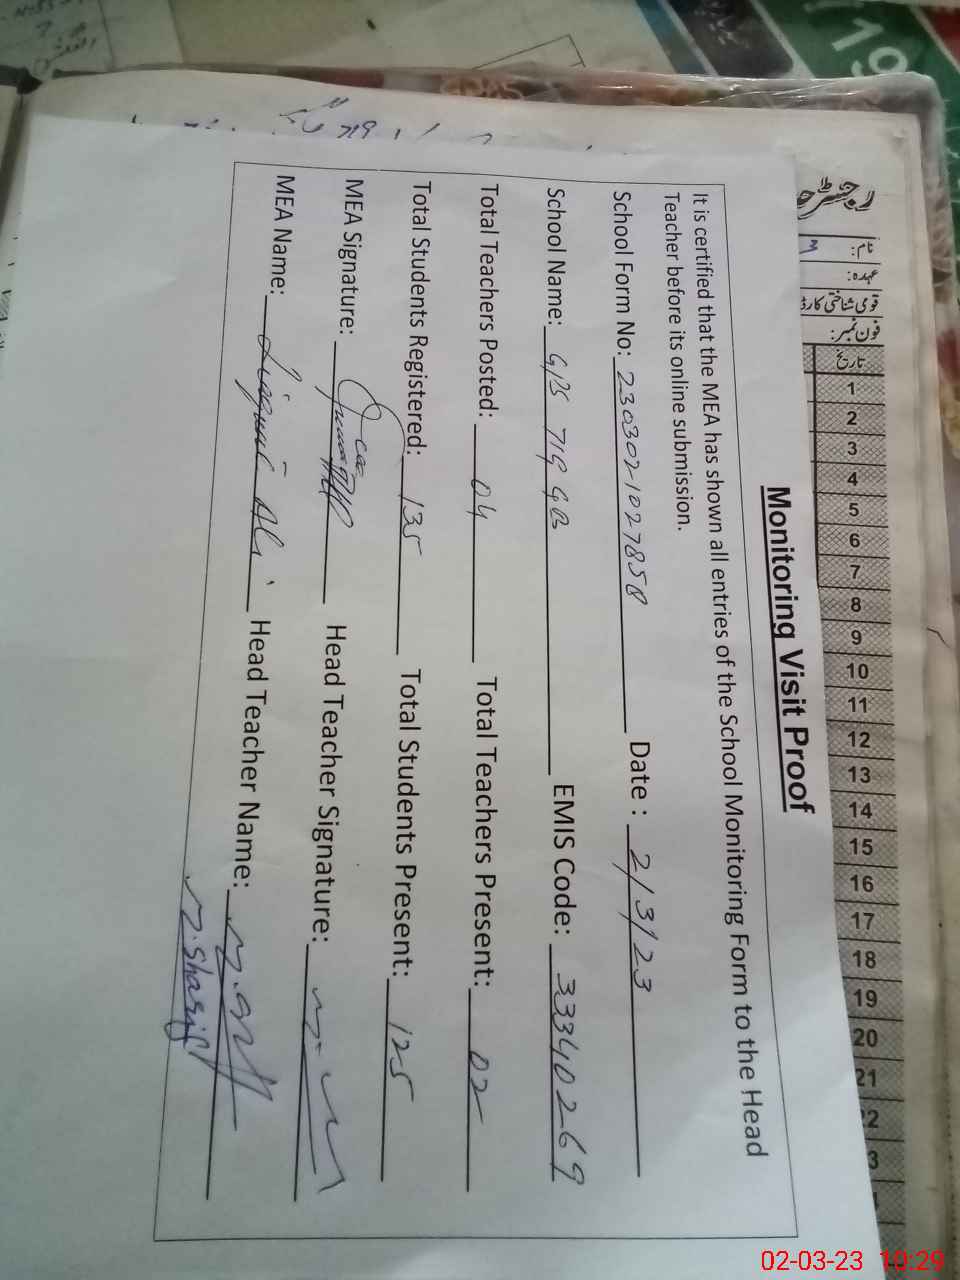 Monitoring Visit Proof
It is certified that the MEA has shown all entries of the School Monitoring Form to the Head
Teacher before its online submission.
School Form No: 230302-1027858 Date : 2/3/23
School Name: GPS 719 GB EMIS Code: 33340269
Total Teachers Posted: 04 Total Teachers Present: 02
Total Students Registered: 135 Total Students Present: 125
MEA Signature: Head Teacher Signature:
MEA Name: Liaquat Ali Head Teacher Name:
M. Sharif
رجسٹر
نام:
عہدہ:
قومی شناختی کارڈ
فون نمبر:
تاریخ
1
2
3
4
5
6
7
8
9
10
11
12
13
14
15
16
17
18
19
20
21
19
02-03-23 10:29